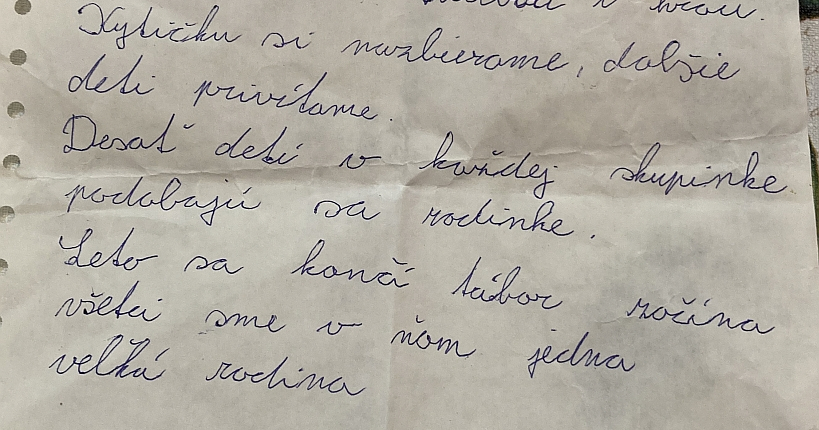 i
Kytičku si nazbierame, dalšie
deti privítame.
Desať detí v každej skupinke
podobajú sa rodinke.
Leto sa končí tábor začína
všetci sme v ňom jedna
velká rodina